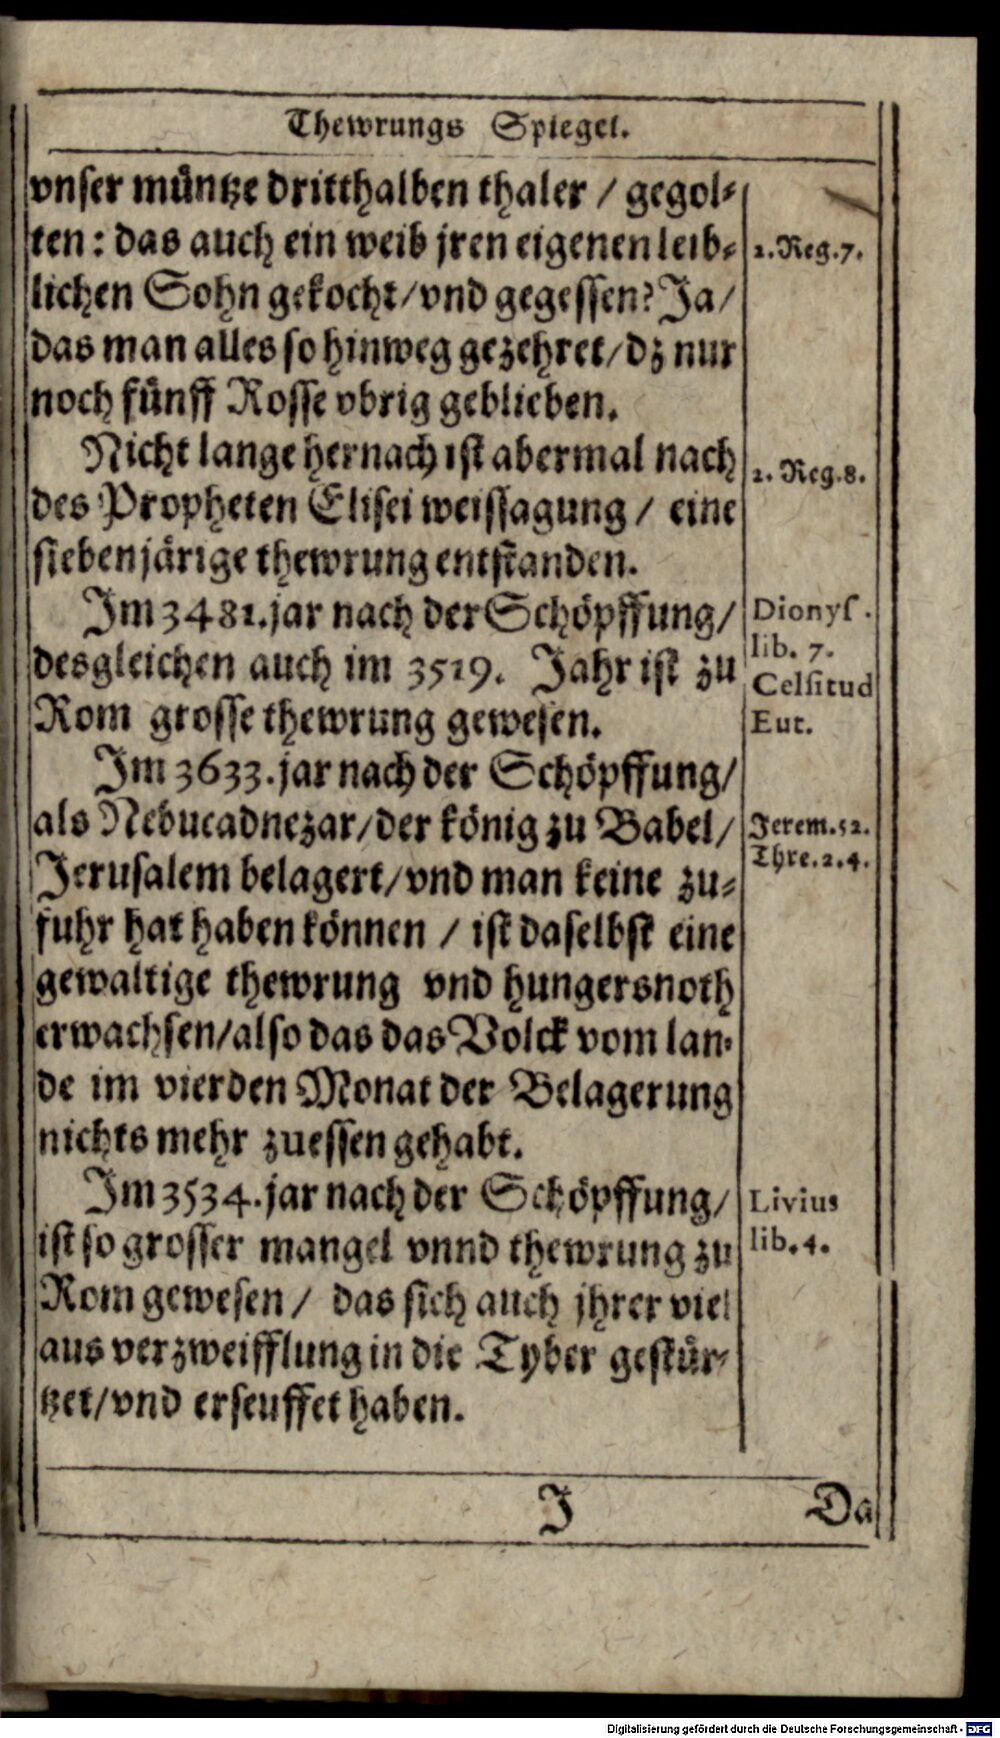 Thewrungs Spiegel.
vnser müntze dritthalben thaler / gegol⸗
ten: das auch ein weib jren eigenen leib⸗
lichen Sohn gekocht/vnd gegessen? Ja/
das man alles so hinweg gezehret/dz nur
noch fünff Rosse vbrig geblieben.
2. Reg. 7.
Nicht lange hernach ist abermal nach
des Propheten Elisei weissagung / eine
siebenjärige thewrung entstanden.
2. Reg. 8.
Im 3481. jar nach der Schöpffung/
desgleichen auch im 3519. Jahr ist zu
Rom grosse thewrung gewesen.
Dionyſ.
lib. 7.
Celſitud
Eut.
Im 3633. jar nach der Schöpffung/
als Nebucadnezar/der könig zu Babel/
Jerusalem belagert/vnd man keine zu⸗
fuhr hat haben können / ist daselbst eine
gewaltige thewrung vnd hungersnoth
erwachsen/also das das Volck vom lan⸗
de im vierden Monat der Belagerung
nichts mehr zuessen gehabt.
Jerem. 52.
Thre. 2. 4.
Im 3534. jar nach der Schöpffung/
ist so grosser mangel vnnd thewrung zu
Rom gewesen / das sich auch jhrer viel
aus verzweifflung in die Tyber gestür⸗
tzet/vnd erseuffet haben.
Livius
lib. 4.
J
Da
Digitalisierung gefördert durch die Deutsche Forschungsgemeinschaft - DFG